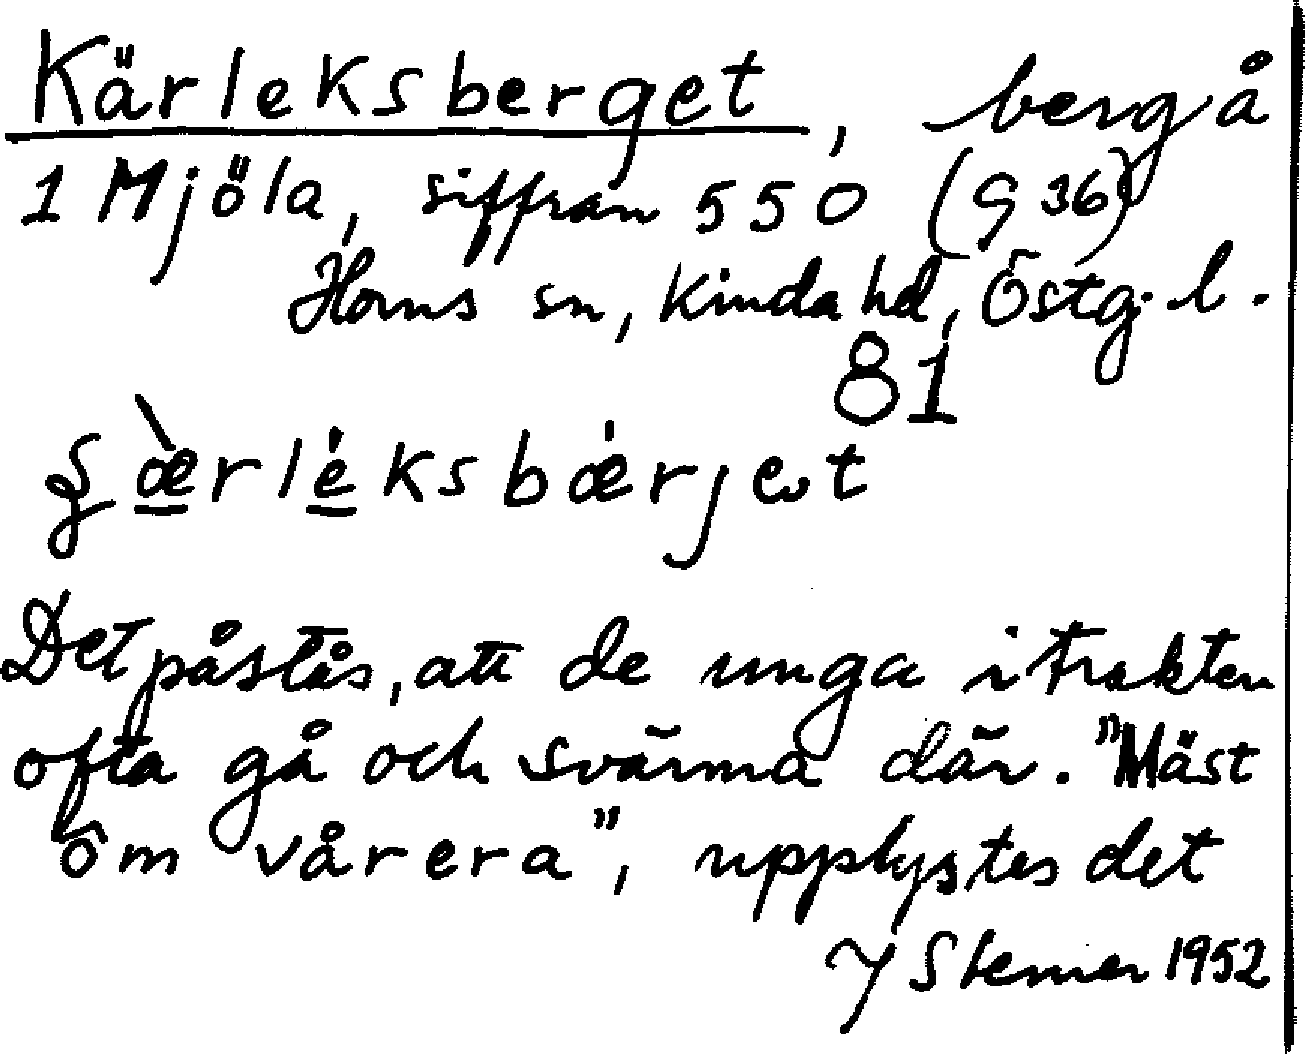 Kärleksberget, berg å
1 Mjöla, siffran 550 (G 36)
Horns sn, Kinda hd, Östg. l.
81
œ̀rléksbœ́rjet
Det påstås, att de unga i trakten
ofta gå och svärma där. "Mäst
ôm vårera", upplystes det
1952